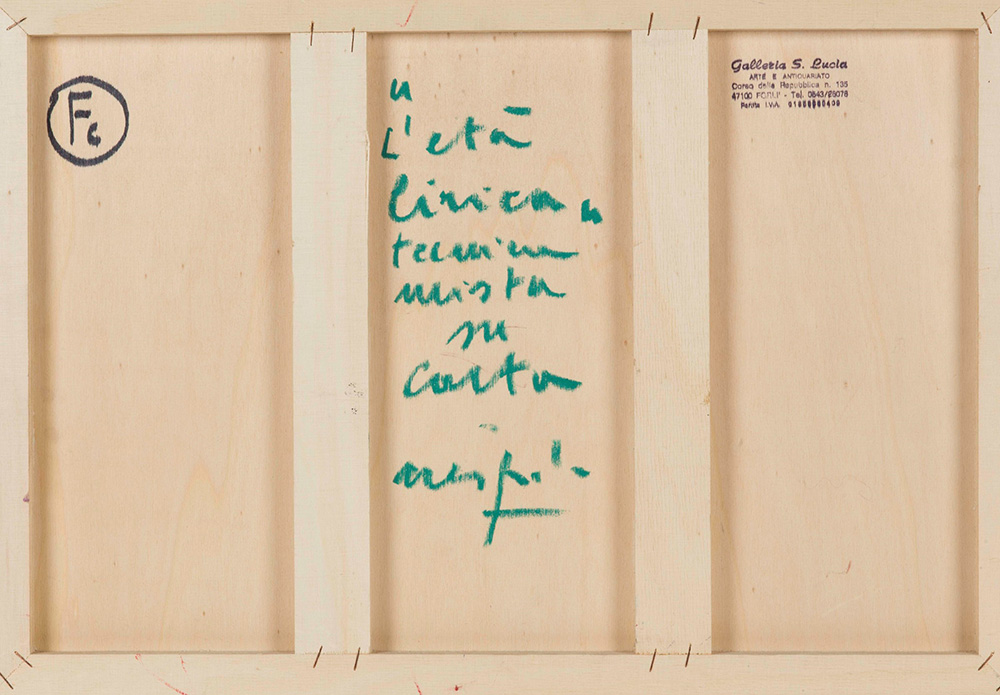 F6
"
L'età
lirica"
tecnica
mista
su
carta
nespolo
Galleria S. Lucia
ARTE E ANTIQUARIATO
Corso della Repubblica n. 135
47100 FORLI' - Tel. 0543/
Partita I.V.A.